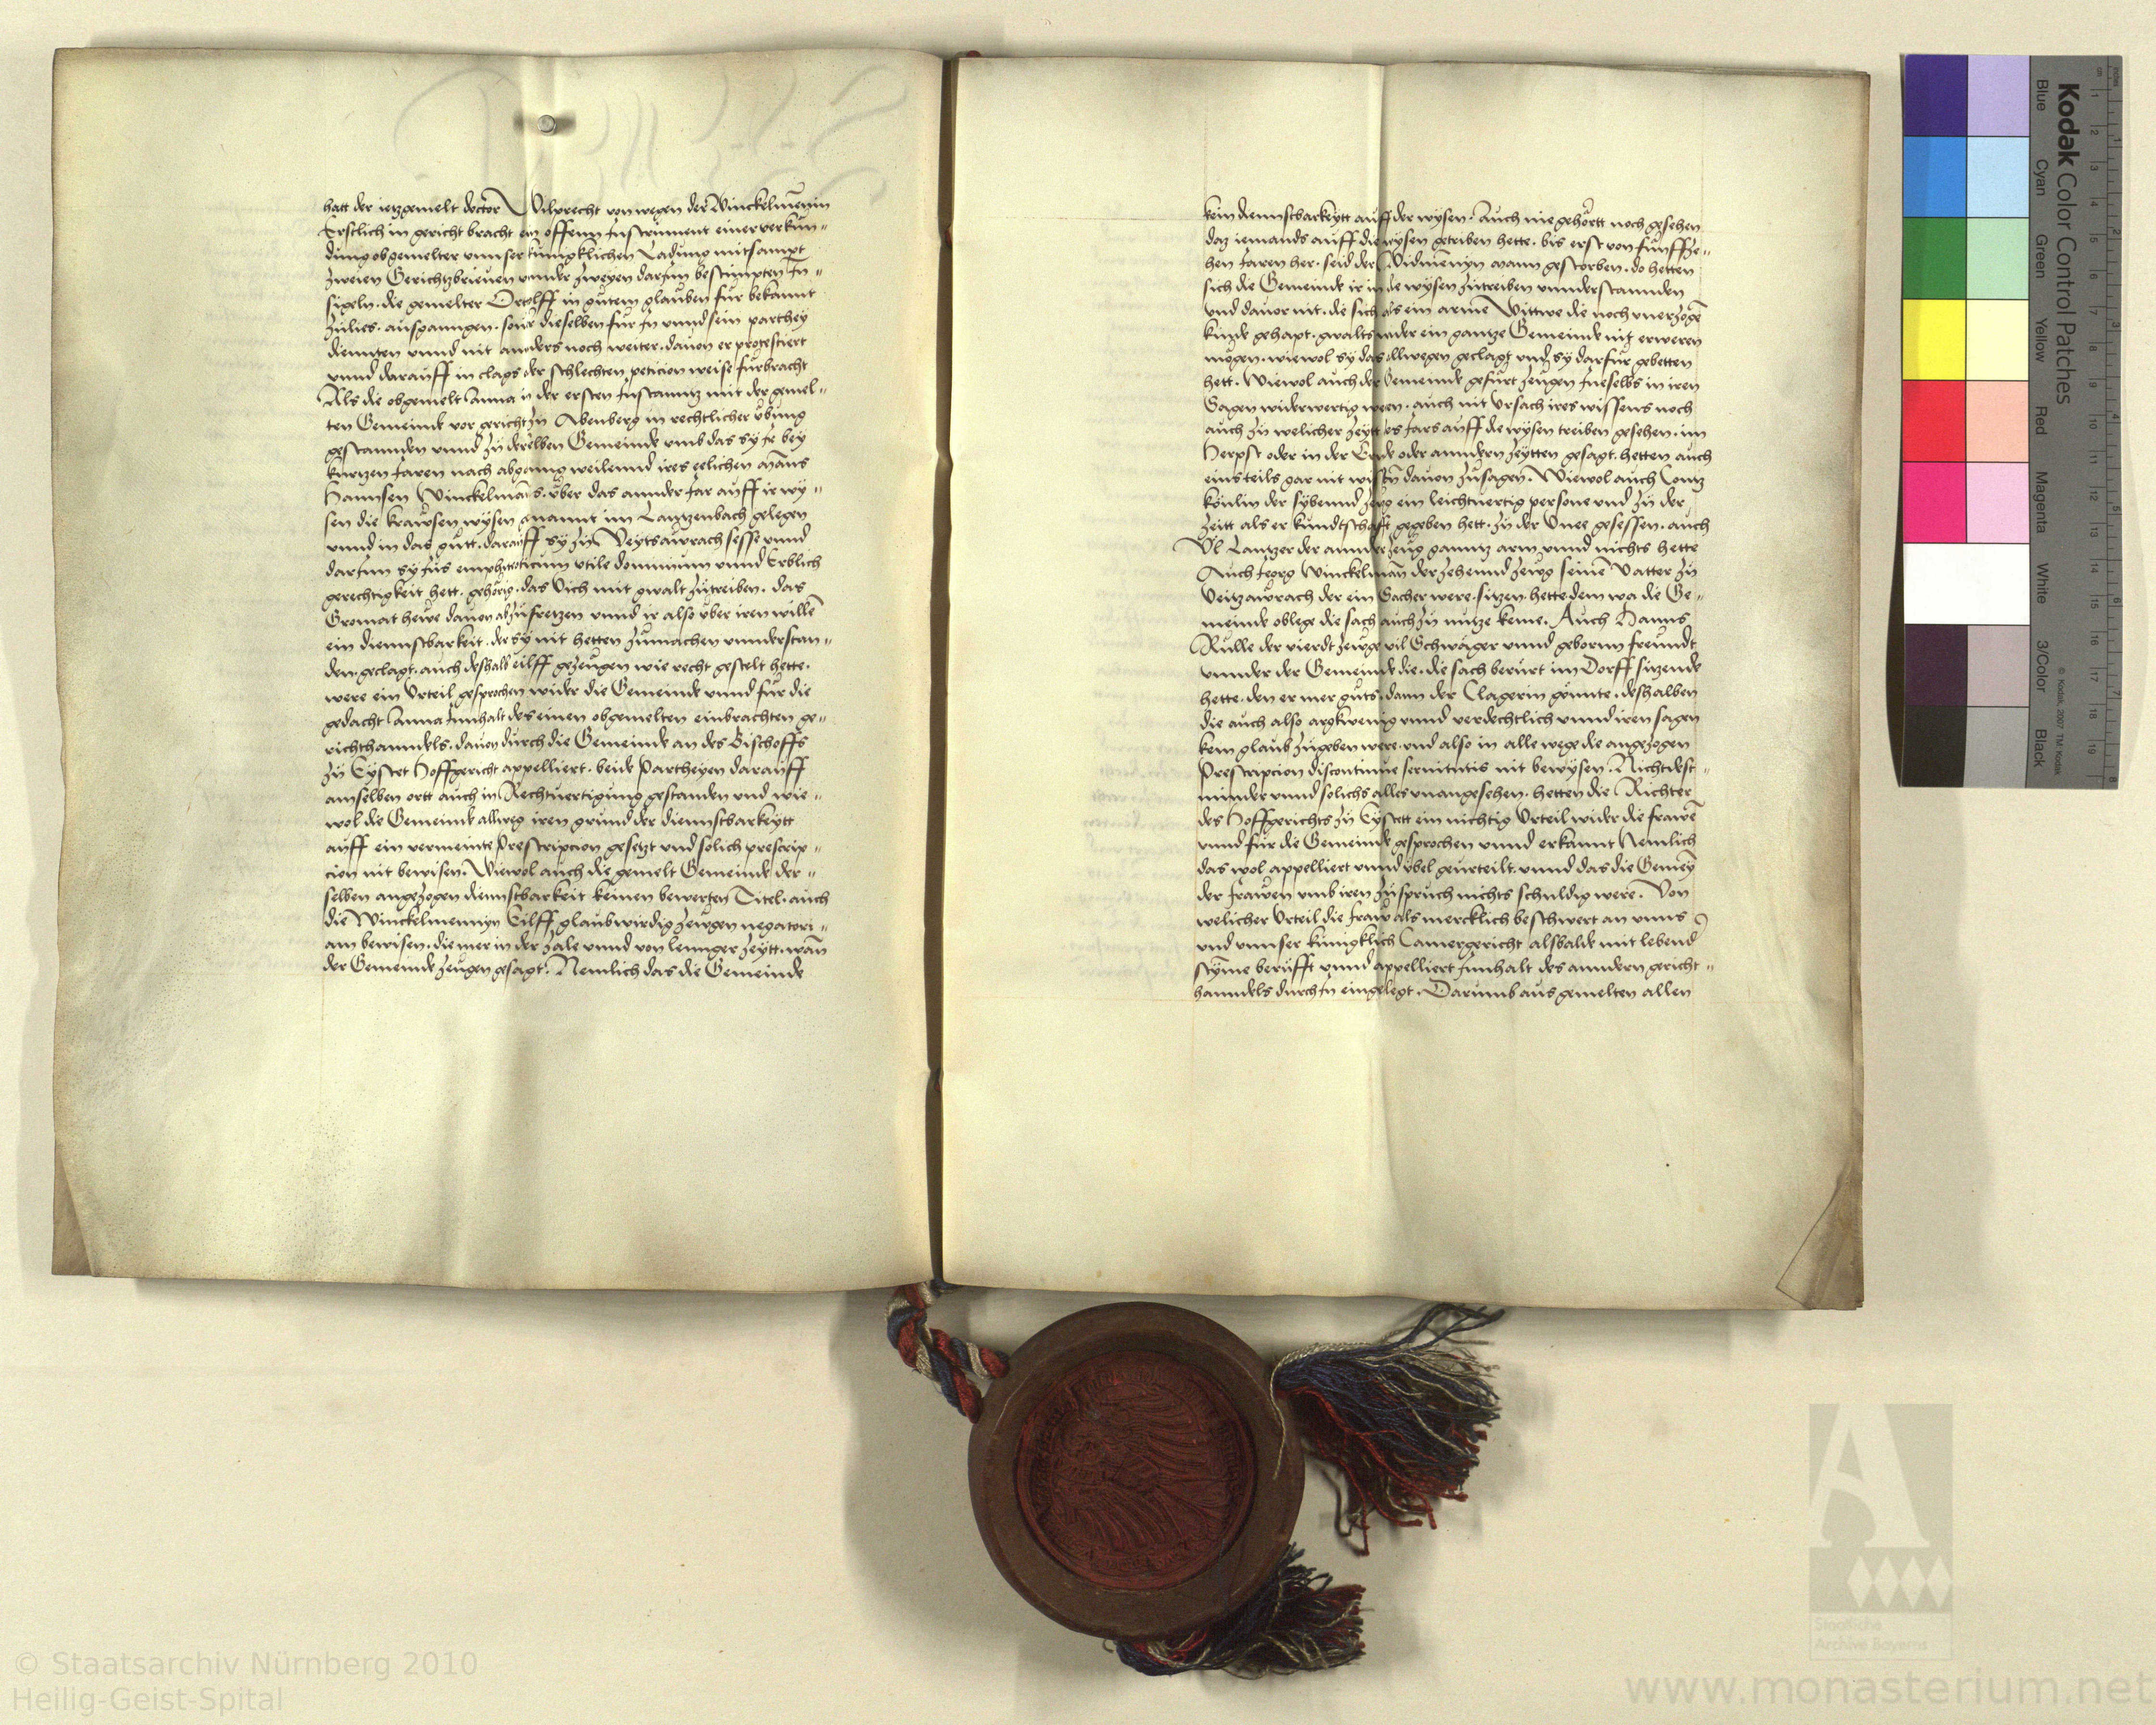 hatt der ietzgemelt doctor Wilprecht von wegen der Winckelmēnin
Erstlich in gericht bracht ein offenn Instrument einer verkün„
dung obgemelter vnnser künigklichen Ladung mitsampt
zweien Gerichtzbrieuen vnnder zweyen darjnn bestimpten In„
sigeln. die gemelter Ortolff in gutem glauben für bekannt
zulies. ausgangen. souer dieselben für jn vnnd sein parthey
diennten vnnd nit annders noch weiter. dauon er protestiert
vnnd darauff in clags der schlechten peticion weise fürbracht
Als die obgemelt Anna in der ersten Instanntz mit der gemel„
ten Gemeinde vor gericht zu Abenberg in rechtlicher übung
gestannden vnnd zu derselben Gemeinde vmb das sy je bey
kurtzen Jaren nach abganng weilennd ires eelichen manns
Hannsen Winckelmans. über das annder Jar auff ir wy„
sen die krawsen wysen genannt im Lantzenbach gelegen
vnnd in das gutt. darauff sy zu Veytsawrach sesse vnnd
darjnn sy jus emphiteoticum vtile dominium vnnd Erblich
gerechtigkeit hett. gehörig. das Vich mit gwalt zutreiben. das
Gromat hewe dauon abzufretzen vnnd ir also über iren willē
ein diennstbarkeit. der sy nit hetten zumachen vnnderstan„
den. geclagt. auch deshalb eilff gezeugen wie recht gestelt hette.
were ein Vrteil gesprochen wider die Gemeinde vnnd für die
gedacht Anna Innhalt des einen obgemelten einbrachten ge„
richthanndels. dauon durch die Gemeinde an des Bischoffs
zu Eystet Hoffgericht appelliert. beide Partheyen darauff
amselben ortt auch in Rechtuertigung gestanden vnd wie„
wol die Gemeinde allweg iren grund der diennstbarkeytt
auff ein vermeinte Prescripcion gesetzt vnd solich prescrip„
cion nit bewisen. Wiewol auch die gemelt Gemeinde der„
selben angezogen diennstbarkeit keinen bewerten Titel. auch
die Winckelmennyn Eilff glaubwirdig zewgen negatori„
am bewisen. die mer in der zale vnnd von lennger zeytt. wān
der Gemeinde zeugen gesagt. Nemlich das die Gemeinde
kein diennstbarkeytt auff der wysen. Auch nie gehörtt noch gesehen
daz iemands auff die wysen getriben hette. bis erst von funffze„
hen Jaren her. seid der Widmēnyn mann gestorben. do hetten
sich die Gemeinde ir in die wysen zutreiben vnnderstannden
vnd dauor nit. die sich als ein arme Wittwe die noch vnerzogē
kinde gehapt. gwalts wider ein gantze Gemeinde nit erweren
mögen. wiewol sy das allwegen geclagt vnd sy darfür gebetten
hett. Wiewol auch der Gemeinde gefürt zeugen jneselbs in iren
Sagen widerwertig weren. auch nit vrsach ires wissens noch
auch zu welicher zeytt des Jars auff die wysen treiben gesehen. im
Herpst oder in der Ernde oder anndern zeytten gesagt. hetten auch
eins teils gar nit wissen dauon zusagen. Wiewol auch Contz
könlin der sybennd zewg ein leichtuertig persone vnd zu der
zeitt als er kundtschafft gegeben hett. zu der Vnee gesessen. auch
Vl Lantzer der annder zeug ganntz arm vnnd nichts hette
Auch Jeorg Winckelman der zehennd zewg seinē Vatter zu
Veitzawrach der ein Sacher were. sitzen hette dem wa die Ge„
meinde oblege die sach auch zu nutze keme. Auch Hanns
Rülle der vierdt zeuge vil Schwäger vnnd gebornn freundt
vnnder der Gemeinde die. die sach berürt im Dorff sitzende
hette. den er mer guts. dann der Clagerin gönnte. deshalben
die auch also argkwenig vnnd verdechtlich vnnd iren sagen
kein glaub zugeben were. vnd also in alle wege die angezogen
Prescripcion discontinue seruitutis nit bewysen. Nichtdest„
minder vnnd solichs alles vnangesehen. hetten die Richter
des Hoffgerichts zu Eystett ein nichtig Vrteil wider die frawē
vnnd für die Gemeinde gesprochen vnnd erkannt Nemlich
das wol appelliert vnnd übel geurteilt. vnnd das die Gemeȳ
der frawen vmb iren zuspruch nichts schuldig were. Von
welicher Vrteil die fraw als mercklich beschwert an vnns
vnd vnnser künigklich Camergericht alsbalde mit lebend
styme berüfft vnnd appelliert Innhalt des anndern gericht„
hanndels durch jn eingelegt. Darumb aus gemelten allen
Kodak Color Control Patches
Blue Cyan Green Yellow Red Magenta White 3/Color Black
© Kodak, 2007 TM: Kodak
Staatliche
Archive Bayerns
© Staatsarchiv Nürnberg 2010
Heilig-Geist-Spital
www.monasterium.net